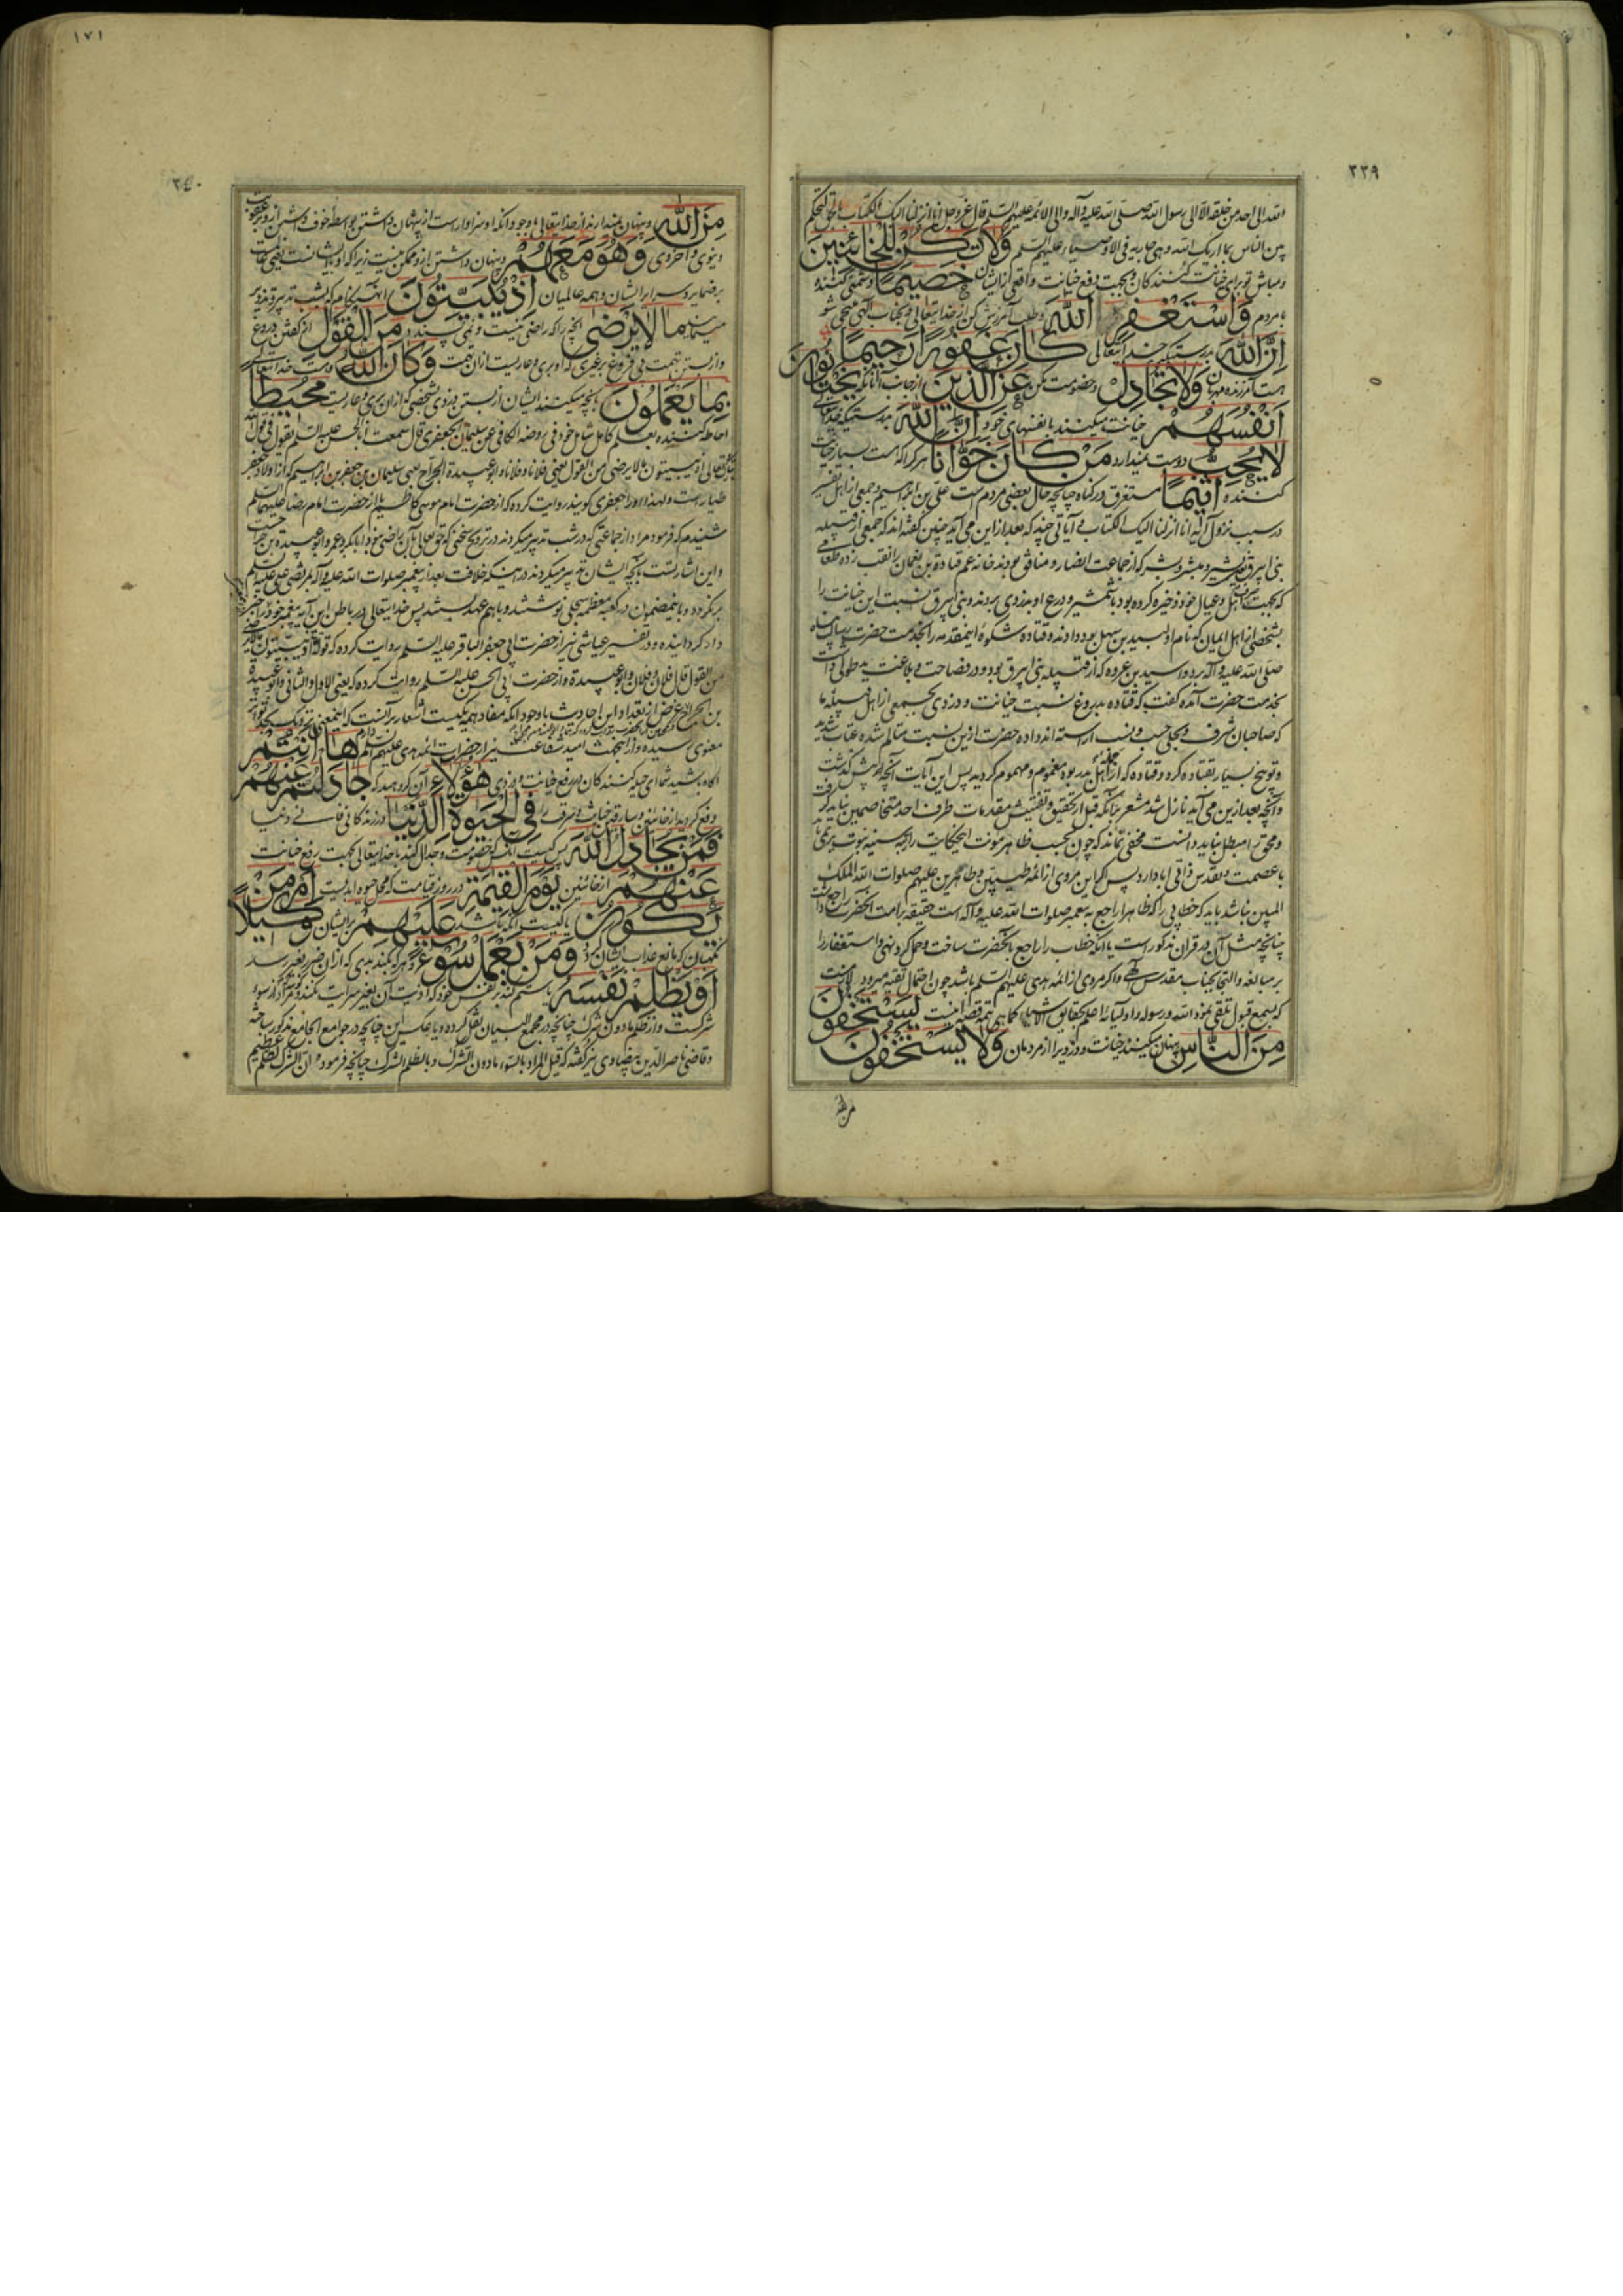 ٢٣٩
الله الی احد من خلقه الا الی رسول الله صلی الله علیه وآله والی الائمه علیهم السلم قال عز وجل انا انزلنا الیک الکتاب بالحق لتحکم
بین الناس بما اریک الله وهی جاریه فی الاوصیاء علیهم السلم وَلاتَكُنْ لِلْخائِنينَ
ومباش تو برای خیانت کنندکان وبجهت دفع خیانت واقعی از ایشان خَصيمًا ودشمنی کننده
بامردم وَاسْتَغْفِرِ اللهَ وطلب آمرزش کن از خدایتعالی وبجناب الهی ملتجی شو
اِنَّ اللهَ بدرستیکه خدایتعالی كانَ غَفُورًا رَحيمًا
هست آمرزنده مهربان وَلاتُجادِلْ وخصومت مکن عَنِ الَّذينَ از جانب آنانکه يَخْتانُونَ
اَنْفُسَهُمْ خیانت میکنند با نفسهای خود اِنَّ اللهَ بدرستیکه خدایتعالی
لايُحِبُّ دوست نمیدارد مَنْ كانَ خَوّانًا هرکرا که هست بسیار خیانت
کننده اَثيمًا مستغرق در کناه چنانچه حال بعضی مردم است علی بن ابراهیم وجمعی از اهل تفسیر
در سبب نزول آیه انا انزلنا الیک الکتاب با آیاتی چند که بعد از این می آید چنین گفته اند که جمعی از قبیله
بنی ابیرق بشیر ومبشر وبشر که از جماعت انصار ومنافق بودند خانه عم قتادة بن نعمان را نقب زده طعامی
که بجهت اهل وعیال خود ذخیره کرده بود با شمشیر ودرع او بدزدی بردند وبنی ابیرق نسبت این خیانت را
بشخصی از اهل ایمان که نام او لبید بن سهل بود دادند وقتاده شکوهٔ اینمقدمه را بخدمت حضرت رسالت پناه
صلی الله علیه وآله برد واسید بن عروه که از قبیله بنی ابیرق بود ودر فصاحت وبلاغت ید طولی داشت
بخدمت حضرت آمده گفت که قتاده بدروغ نسبت خیانت ودزدی بجمعی از اهل قبیلهٔ ما
که صاحبان شرف ونجلی حسب ونسب آراسته اند داده حضرت ازین نسبت متالم شده عتاب شدید
وتوبیخ بسیار بقتاده کرد وقتاده که از اهل بدر بوده مغموم ومهموم کردید پس این آیات آنچه پیش کذشت
وآنچه بعد ازین می آید نازل شد مشعر بآنکه قبل از تحقیق وتفتیش مقدمات طرف احد متخاصمین نباید گرفت
ومحق را مبطل نباید دانست مخفی نماند که چون بحسب ظاهر
با عصمت وتقدس ذاتی ابا دارد پس اکر این مروی از ائمه طیبین وطاهرین علیهم صلوات الله الملک
المبین نباشد باید که خطابی را که ظاهرا راجع به پیغمبر صلوات الله علیه وآله است حقیقه بامت آنحضرت راجع دانست
چنانچه مثل آن در قران مذکور است یا آنکه خطاب را راجع بآنحضرت ساخت وحمل کرد نهی واستغفار را
بر مبالغه والتجا بجناب مقدس الهی واکر مروی از ائمه هدی علیهم السلم باشد چون احتمال تقیه میرود لازمست
که بسمع قبول تلقی نمود الله ورسوله واولیائه اعلم بحقایق الاشیاء کما هی تتمه قصه اینست يَسْتَخْفُونَ
مِنَ النّاسِ پنهان میکنند خیانت ودزدیرا از مردمان وَلايَسْتَخْفُونَ
من الله
١٧١
٢٤٠
مِنَ اللهِ وپنهان نمیدارند از خدایتعالی با وجود آنکه او سزاوار است از پنهان داشتن بواسطه خوف وشرم ازو وعقوبت
دنیوی واخروی وَهُوَ مَعَهُمْ وپنهان داشتن ازو ممکن نیست زیرا که او با ایشانست یعنی مطلع است
بر ضمایر وسرایر ایشان وهمه عالمیان اِذْ يُبَيِّتُونَ آنهنکام که بشب تدبیر وتزویر
مینمایند ما لايَرْضى آنچه را که راضی نیست ونمی پسندد مِنَ الْقَوْلِ از کفتن دروغ
واز بستن تهمت بی فروغ بر غیری که او بری وعاریست از ان تهمت وَكانَ اللهُ وهست خدایتعالی
بِما يَعْمَلُونَ بآنچه میکنند ایشان از بستن دزدی بشخصی که از ان بری وعاریست مُحيطًا
احاطه کننده بعلم کامل شامل خود فی روضه الکافی عن سلیمان الجعفری قال سمعت ابا الحسن علیه السلم یقول فی قول الله
تبارک وتعالی اذ یبیتون ما لا یرضی من القول یعنی فلانا وفلانا وابو عبیدة الجراح یعنی سلیمان بن جعفر بن ابراهیم که از اولاد جعفر
طیار است ولهذا او را جعفری کویند روایت کرده که از حضرت امام موسی کاظم یا از حضرت امام رضا علیهما السلم
شنیدم که فرمود مراد از جماعتی که در شب تدبیر میکردند در ترویج سخنی که حق تعالی بآن راضی نبود ابابکر وعمر وابو عبیده بن جراحست
واین اشارتست بآنچه ایشان تدبیر میکردند در اینکه خلافت بعد از پیغمبر صلوات الله علیه وآله بمرتضی علی علیه السلم
برنکردد وباینمضمون در کعبه معظمه سجلی نوشتند وباهم عهد بستند پس خدایتعالی در باطن این آیه پیغمبر خود را خبر
داد کردانیده ودر تفسیر عیاشی نیز از حضرت ابی جعفر الباقر علیه السلم روایت کرده که قوله اذ یبیتون ما لا یرضی
من القول قال فلان وفلان وابو عبیدة واز حضرت ابی الحسن علیه السلم روایت کرده که یعنی الاول والثانی وابو عبیدة
بن الجراح غرض از تعداد این احادیث با وجود آنکه مفاد همه یکیست اشعار بر آنست که اینمعنی نزدیک بحد تواتر
معنوی رسیده واز اینجهت امید شفاعت نیز از حضرات ائمه هدی علیهم السلم دارم ها اَنْتُمْ
آکاه باشید شما ای حیله کنندکان در رفع خیانت ودزدی هؤُلاءِ آن کروهید که جادَلْتُمْ عَنْهُمْ
دفع کردید از خائنین وسارقین خیانت وسرقت را فِى الْحَيوةِ الدُّنْيا در زندکانی فانی دنیا
فَمَنْ يُجادِلُ اللهَ پس کیست آنکس که خصومت وجدال کند با خدایتعالی بجهت رفع خیانت
عَنْهُمْ از خائنین يَوْمَ الْقِيمَةِ در روز قیامت که محل حیوه ابدیست اَمْ مَنْ
يَكُونُ یا کیست آنکه باشد عَلَيْهِمْ بر ایشان وَكيلًا
نکهبان که مانع عذاب ایشان کردد وَمَنْ يَعْمَلْ سُوءًا وهر که بکند بدی که از ان ضرر بغیر رسد
اَوْ يَظْلِمْ نَفْسَهُ یا ستم کند بر نفس خود که اذیت آن بغیر سرایت نکند ومراد از سوء
شرکست واز ظلم مادون شرک چنانچه در مجمع البیان نقل کرده ویا عکس این چنانچه در جوامع الجامع مذکور ساخته
وقاضی ناصر الدین بیضاوی نیز گفته که قیل المراد بالسوء مادون الشرک وبالظلم الشرک چنانچه فرموده ان الشرک لظلم عظیم